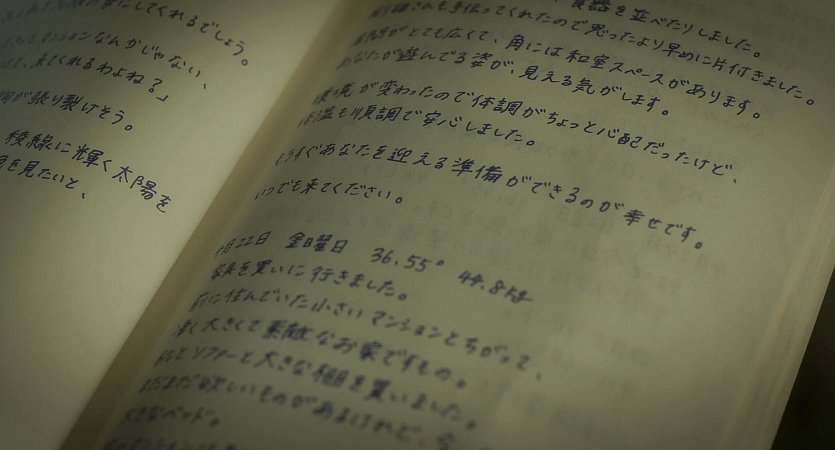 にしてくれるでしょう。
マンションなんかじゃない、
来てくれるわよね？」
が張り裂けそう。
稜線に輝く太陽を
を見たいと、
食器を並べたりしました。
手伝ってくれたので思ったより早めに片付きました。
がとても広くて、角には和室スペースがあります。
あなたが遊んでる姿が、見える気がします。
が変わったので体調がちょっと心配だったけど、
体温も順調で安心しました。
もうすぐあなたを迎える準備ができるのが幸せです。
いつでも来てください。
月22日 金曜日 36.55° 44.8kg
家具を買いに行きました。
前に住んでいた小さいマンションとちがって、
大きくて素敵なお家ですもの。
ソファーと大きな棚を買いました。
まだまだ欲しいものがあるけれど、
大きなベッド。